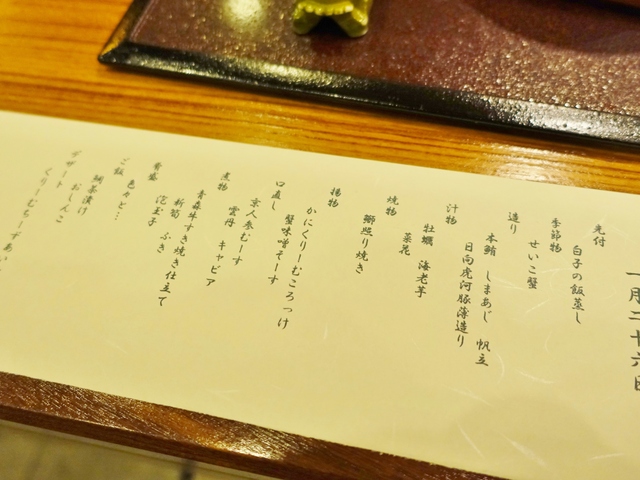 一月二十六日
先付
白子の飯蒸し
季節物
せいこ蟹
造り
本鮪 しまあじ 帆立
日向虎河豚薄造り
汁物
牡蠣 海老芋
菜花
焼物
鰤照り焼き
揚物
かにくりーむころっけ
蟹味噌そーす
口直し
京人参むーす
雲丹 キャビア
煮物
青森牛すき焼き仕立て
新筍 ふき
温玉子
ご飯 色々と…
鯛茶漬け
おしんこ
デザート